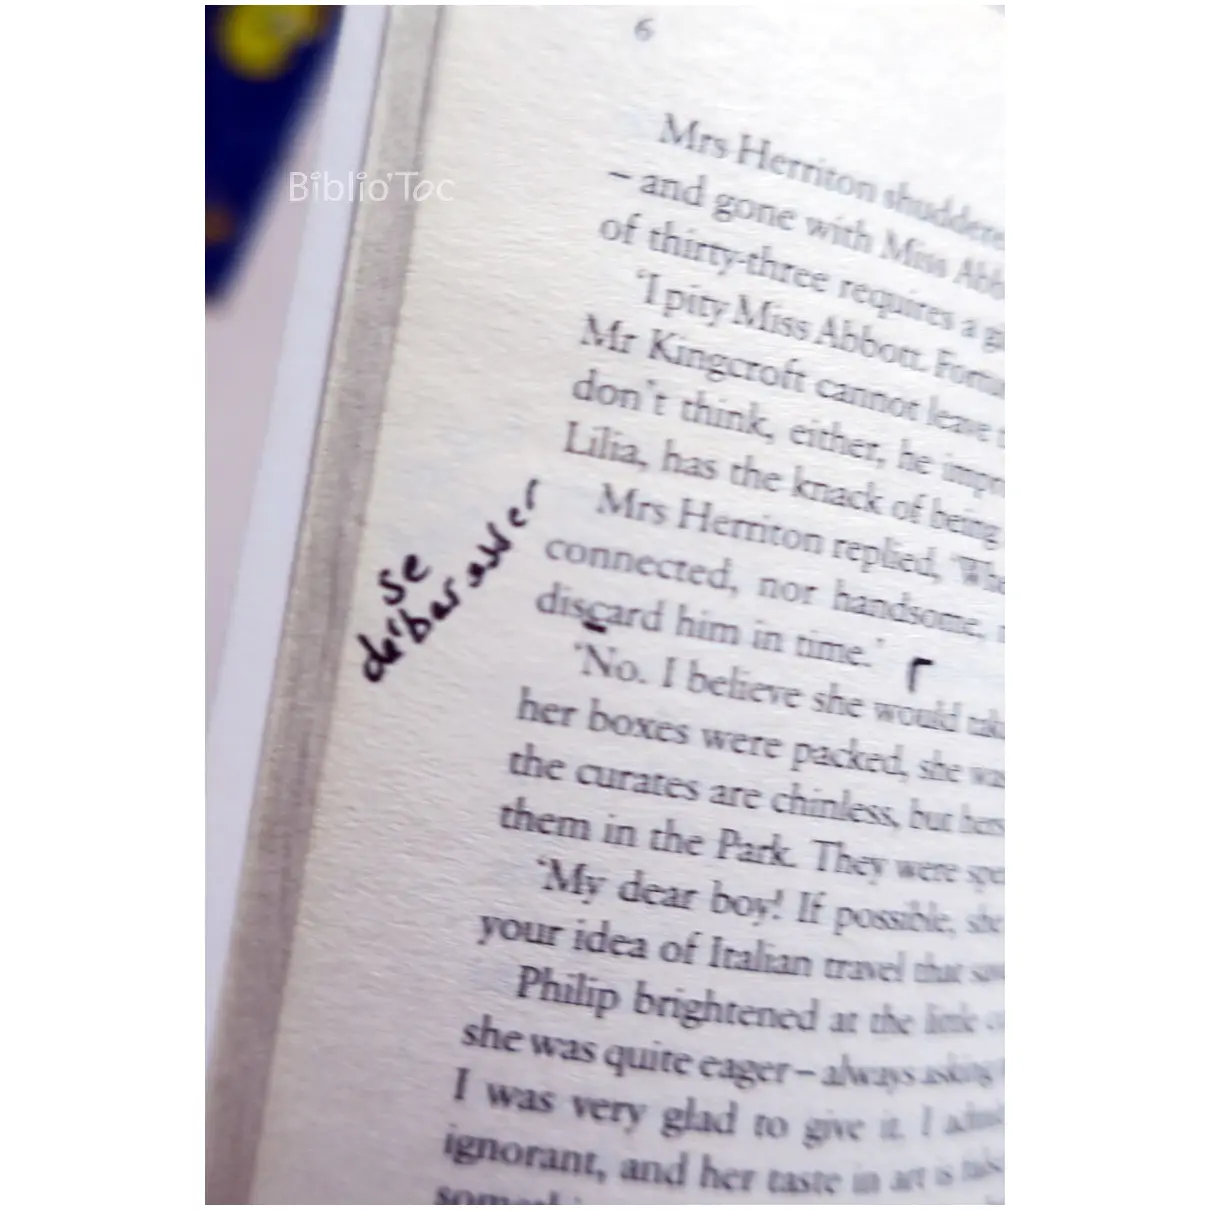 6
Mrs Herriton shuddere
– and gone with Miss Abb
of thirty-three requires a
'I pity Miss Abbott.
Mr Kingcroft cannot leave
don't think, either, he
Lilia, has the knack of being
Mrs Herriton replied,
connected, nor handsome,
discard him in time.'
'No. I believe she would
her boxes were packed, she was
the curates are chinless, but
them in the Park. They were
'My dear boy! If possible, she
your idea of Italian travel that
Philip brightened at the little
she was quite eager – always asking
I was very glad to give it. I
ignorant, and her taste in art is
se
débarasser
r
Biblio'Toc